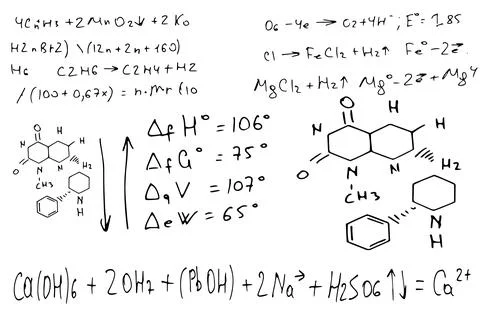 4CnH3 + 2MnO2↓ + 2K0
H2nBr2) \ (12n + 2n + 160)
H6 C2H6 → C2H4 + H2
/ (100 + 0,67x) = n·Mr (10
O6 - 4e → O2 + 4H⁻; E° = 1.85
Cl → FeCl2 + H2↑ Fe° - 2e
MgCl2 + H2↑ Mg° - 2e + Mg4
O
N
H
H
O
N
N
H2
CH3
NH
ΔfH° = 106°
ΔfG° = 75°
ΔqV = 107°
ΔeW = 65°
O
H
N
H
O
N
N
H2
CH3
N
H
Ca(OH)6 + 2OH2 + (PbOH) + 2Na→ + H2SO6↑↓ = Ca2+